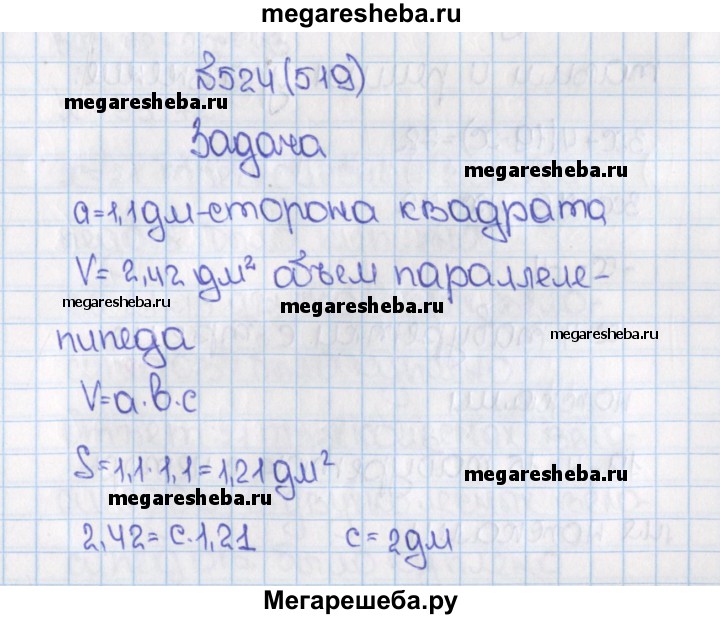 megaresheba.ru
№524(519)
megaresheba.ru
Задача
megaresheba.ru
a=1,1дм-сторона квадрата
V= 2,42 дм² объем параллеле-
megaresheba.ru
megaresheba.ru
megaresheba.ru
пипеда
V=a·b·c
S=1,1·1,1=1,21дм²
megaresheba.ru
megaresheba.ru
2,42=c·1,21 c=2дм
Мегарешеба.ру